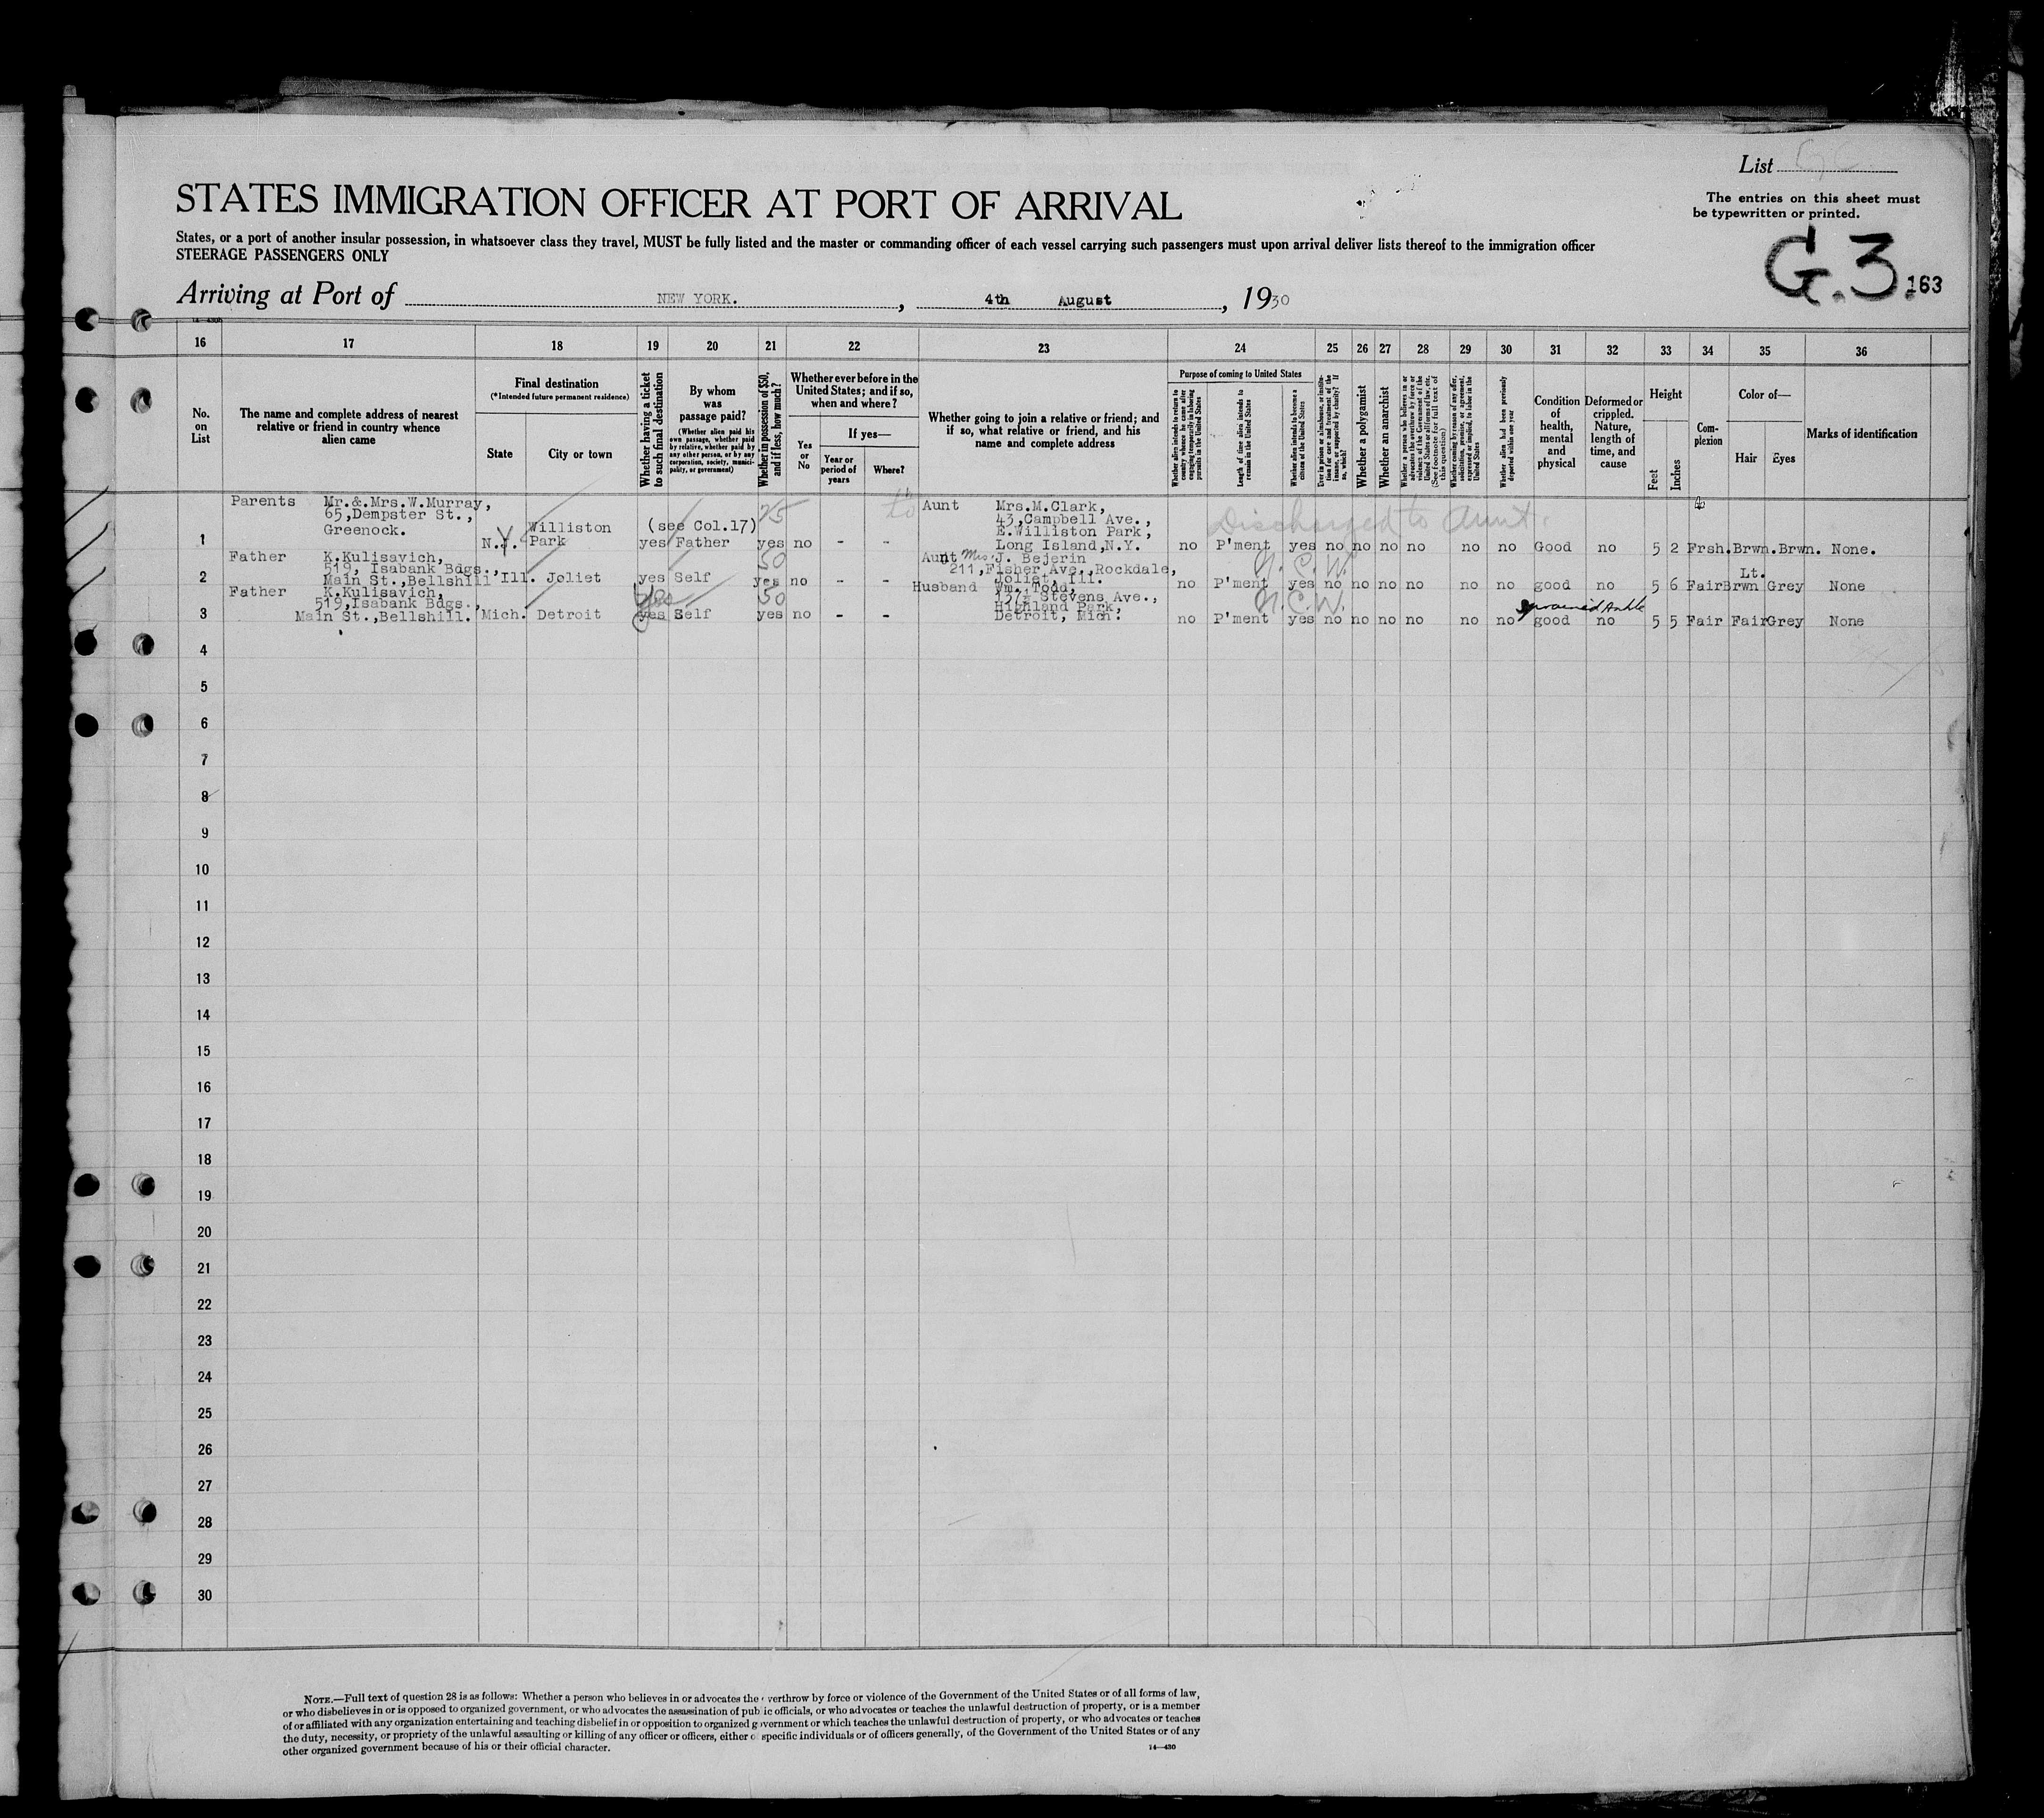 List
The entries on this sheet must
be typewritten or printed.
STATES IMMIGRATION OFFICER AT PORT OF ARRIVAL
States, or a port of another insular possession, in whatsoever class they travel, MUST be fully listed and the master or commanding officer of each vessel carrying such passengers must upon arrival deliver lists thereof to the immigration officer
STEERAGE PASSENGERS ONLY
G.3. 163
Arriving at Port of NEW YORK. , 4th August , 1930
16 17 18 19 20 21 22 23 24 25 26 27 28 29 30 31 32 33 33 34 35 36
No.
on
List
The name and complete address of nearest
relative or friend in country whence
alien came
Final destination
(*Intended future permanent residence)
State
City or town
Whether having a ticket
to such final destination
By whom
was
passage paid?
(Whether alien paid his
own passage, whether paid
by relative, whether paid by
any other person, or by any
corporation, society, munici-
pality, or government)
Whether in possession of $50,
and if less, how much?
Whether ever before in the
United States; and if so,
when and where?
Yes
or
No
If yes—
Year or
period of
years
Where?
Whether going to join a relative or friend; and
if so, what relative or friend, and his
name and complete address
Purpose of coming to United States
Whether alien intends to return to
country whence he came after
engaging temporarily in laboring
pursuits in the United States
Length of time alien intends to
remain in the United States
Whether alien intends to become a
citizen of the United States
Ever in prison or almshouse, or institu-
tion for care and treatment of the
insane, or supported by charity? If
so, which?
Whether a polygamist
Whether an anarchist
Whether a person who believes in or
advocates the overthrow by force or
violence of the Government of the
United States or all forms of law, etc.
(See footnote for full text of
this question)
Whether coming by reason of any offer,
solicitation, promise, or agreement,
expressed or implied, to labor in the
United States
Whether alien had been previously
deported within one year
Condition
of
health,
mental
and
physical
Deformed or
crippled.
Nature,
length of
time, and
cause
Height
Feet
Inches
Com-
plexion
Color of—
Hair
Eyes
Marks of identification
Parents Mr.&.Mrs.W.Murray,
65,Dempster St.,
Greenock.
1 N.Y. Williston
Park
(see Col.17)
yes Father 25 yes no - - Aunt Mrs.M.Clark,
43,Campbell Ave.,
E.Williston Park,
Long Island,N.Y.
Discharged to Aunt.
no P'ment yes no no no no no no Good no 5 2 Frsh. Brwn. Brwn. None.
Father K.Kulisavich,
519, Isabank Bdgs.,
Main St.,Bellshill
2 Ill. Joliet yes Self 50 yes no - - Aunt Mrs. J. Bejerin
211,Fisher Ave.,Rockdale,
Joliet, Ill.
N.C.W.
no P'ment yes no no no no no no good no 5 6 Fair Lt.
Brwn Grey None
Father K.Kulisavich,
519,Isabank Bdgs.,
Main St.,Bellshill.
3 Mich. Detroit yes
yes Self 50 yes no - - Husband Wm. Todd,
137½ Stevens Ave.,
Highland Park,
Detroit, Mich.
N.C.W.
Sprained Ankle
no P'ment yes no no no no no no good no 5 5 Fair Fair Grey None
4
5
6
7
8
9
10
11
12
13
14
15
16
17
18
19
20
21
22
23
24
25
26
27
28
29
30
NOTE.—Full text of question 28 is as follows: Whether a person who believes in or advocates the verthrow by force or violence of the Government of the United States or of all forms of law,
or who disbelieves in or is opposed to organized government, or who advocates the assassination of pub ic officials, or who advocates or teaches the unlawful destruction of property, or is a member
of or affiliated with any organization entertaining and teaching disbelief in or opposition to organized g vernment or which teaches the unlawful destruction of property, or who advocates or teaches
the duty, necessity, or propriety of the unlawful assaulting or killing of any officer or officers, either o specific individuals or of officers generally, of the Government of the United States or of any
other organized government because of his or their official character.
14—430